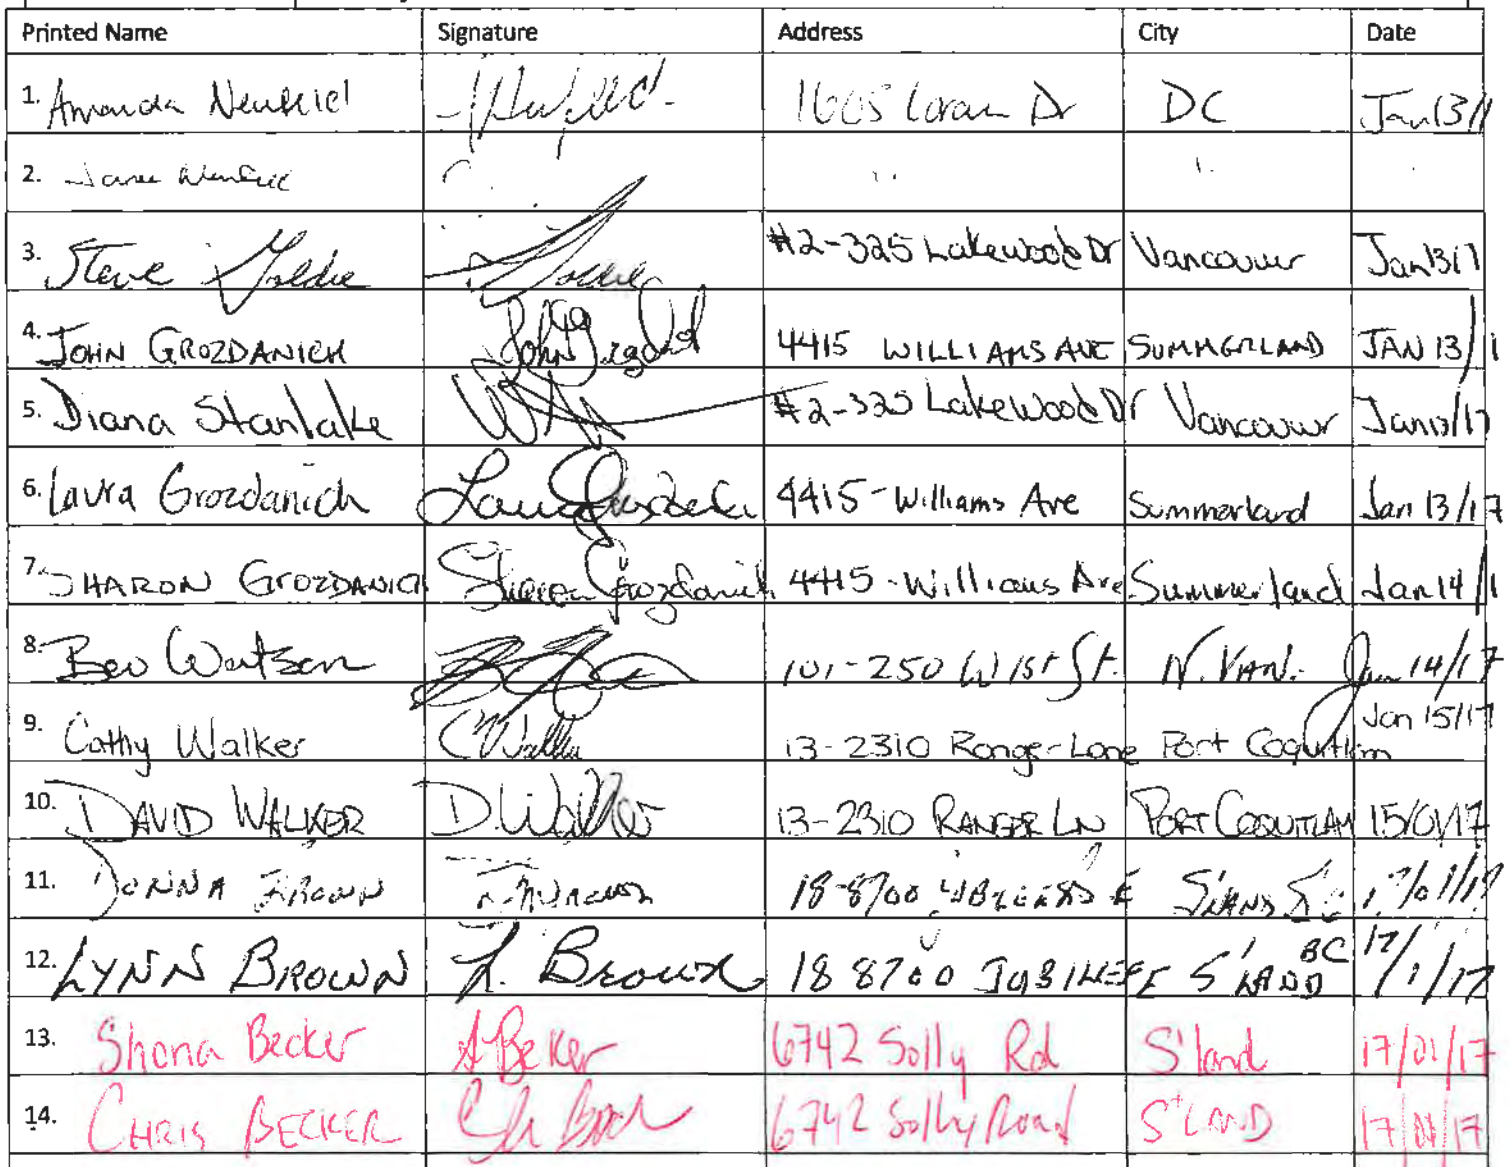 Printed Name Signature Address City Date
1. Amanda Dr DC Jan 13/1
2.
3. Steve Goldie #2-325 Lakewood Dr Vancouver Jan 13/1
4. JOHN GROZDANICH John 4415 WILLIAMS AVE SUMMERLAND JAN 13/1
5. Diana Stanlake #2-325 Lakewood Dr Vancouver Jan 13/17
6. Laura Grozdanich 4415-Williams Ave Summerland Jan 13/17
7. SHARON GROZDANICH Sharon Grozdanich 4415-Williams Ave Summerland Jan 14/1
8. Bev Watson 101-250 W 1st St. N. VAN. Jan 14/17
9. Cathy Walker C Walker 13-2310 Ranger Lane Port Coquitlam Jan 15/17
10. DAVID WALKER D. Walker 13-2310 RANGER LN PORT COQUITLAM 15/01/17
11. DONNA BROWN 18-8700
12. LYNN BROWN L. Brown 18 8700 JUBILEE E S'LAND BC 17/1/17
13. Shona Becker S Becker 6742 Solly Rd S'land 17/01/17
14. CHRIS BECKER 6742 Solly Road S'LAND 17/01/17